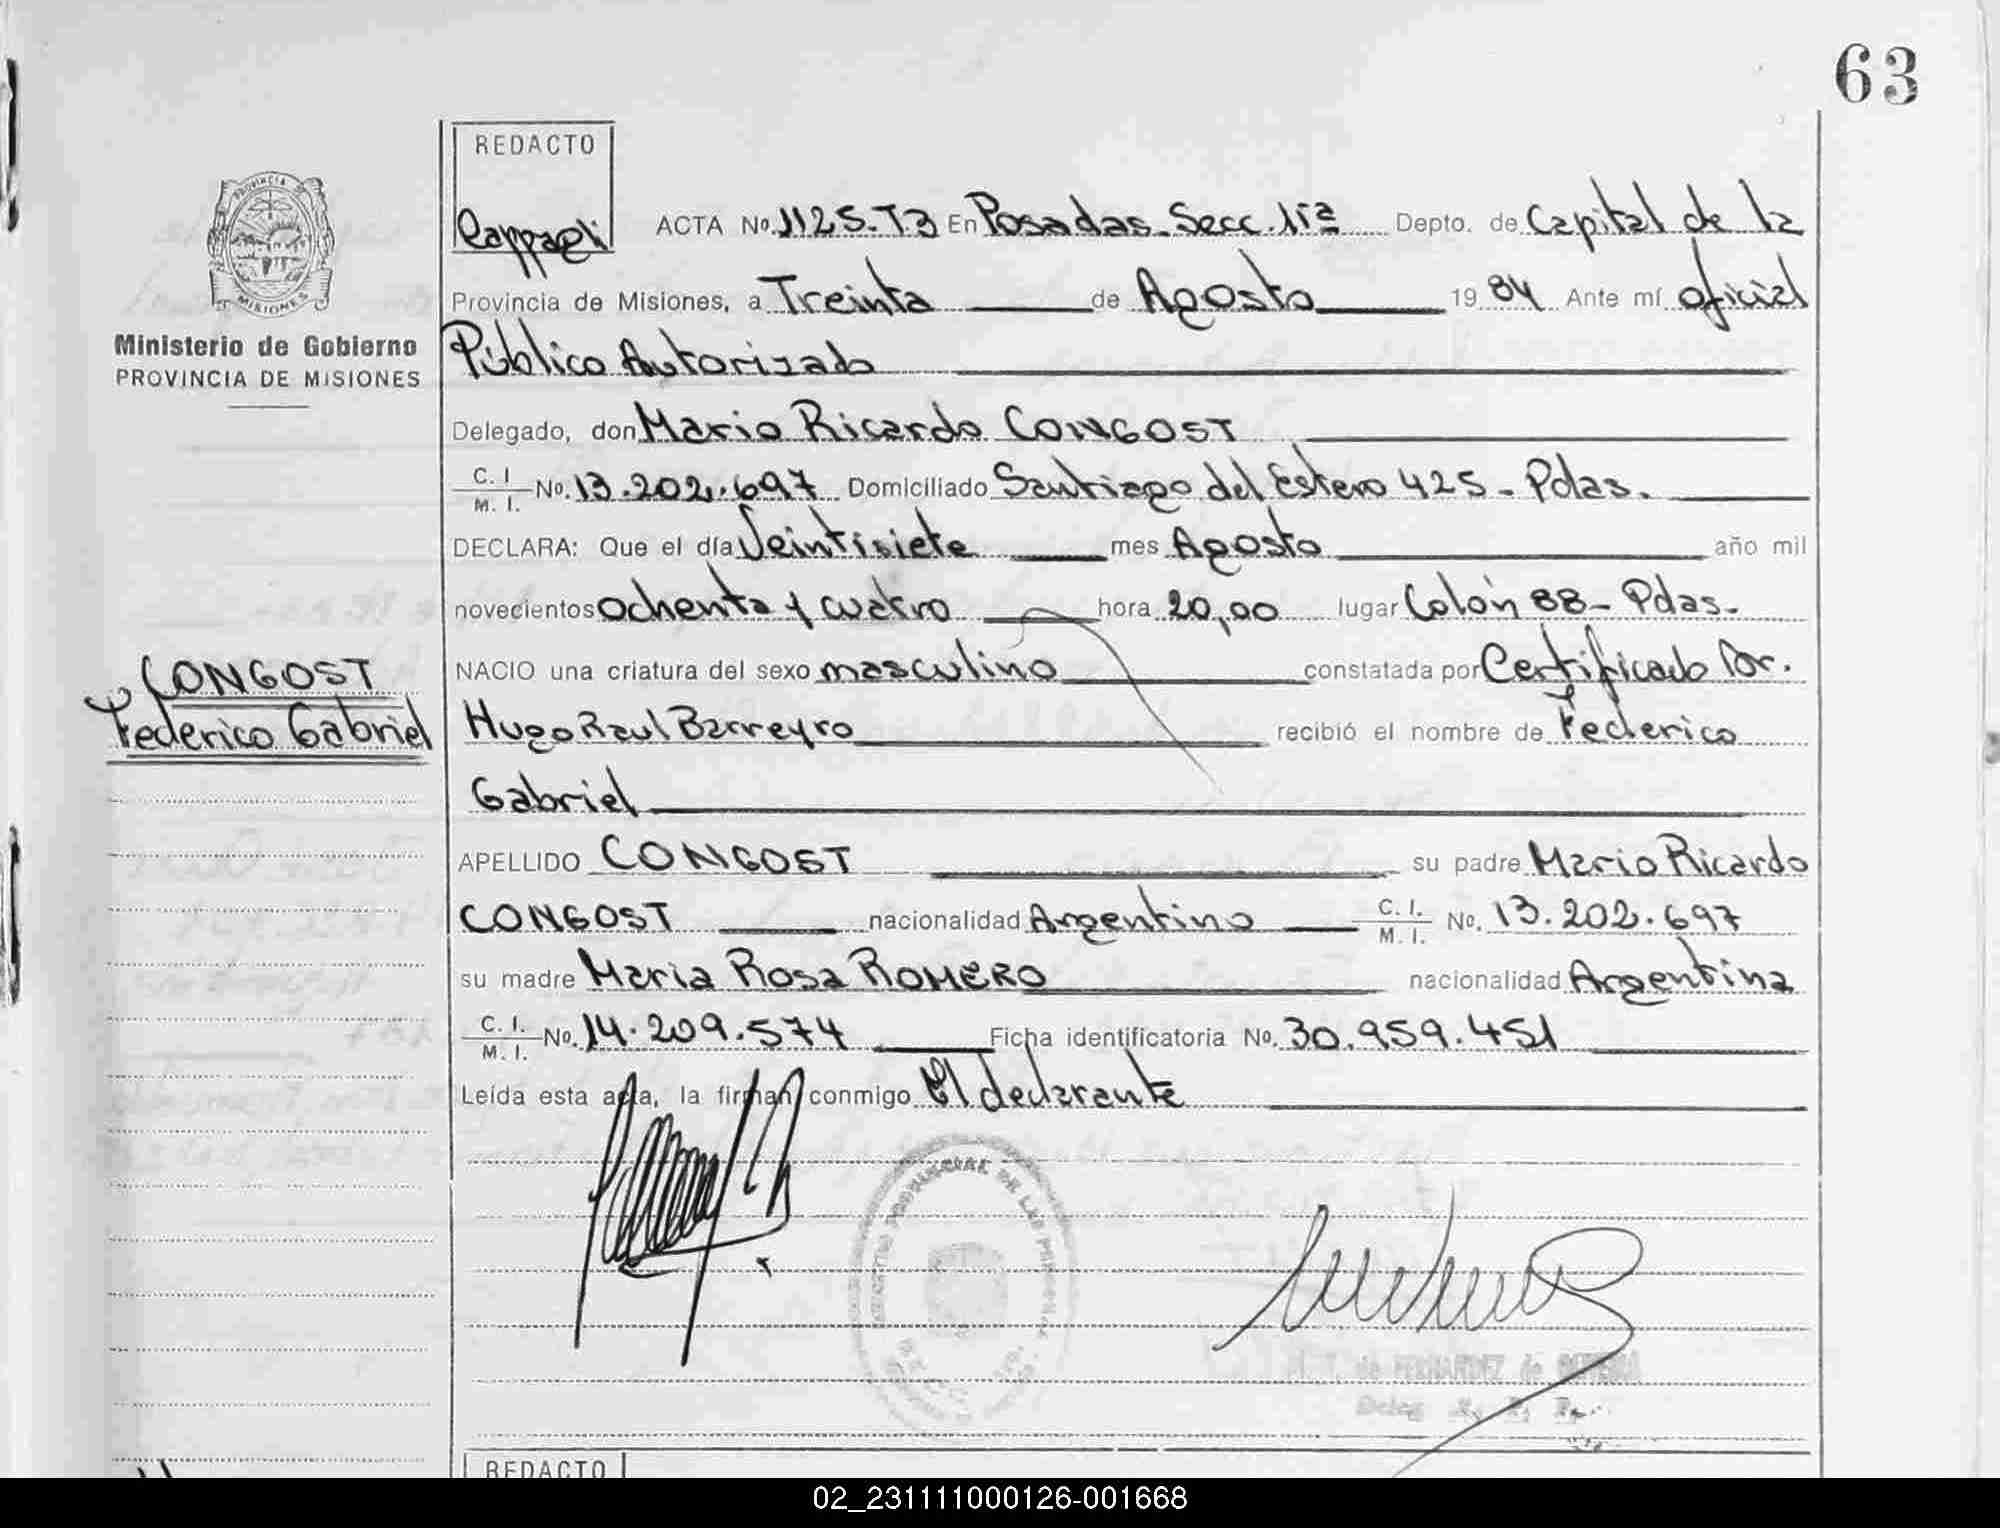 63
REDACTO
ACTA No. 1125-T3 En Posadas-Secc. 1ra Depto. de Capital de la
Provincia de Misiones, a Treinta de Agosto 1984 Ante mí oficial
Público Autorizado
Delegado, don Mario Ricardo CONGOST
C. I. M. I. No. 13.202.697 Domiciliado Santiago del Estero 425 - Pdas.
DECLARA: Que el día Veintisiete mes Agosto año mil
novecientos ochenta y cuatro hora 20,00 lugar Colón 88 - Pdas.
NACIO una criatura del sexo masculino constatada por Certificado Dr.
Hugo Raul Barreyro recibió el nombre de Federico
Gabriel
APELLIDO CONGOST su padre Mario Ricardo
CONGOST nacionalidad Argentino C. I. M. I. No. 13.202.697
su madre Maria Rosa ROMERO nacionalidad Argentina
C. I. M. I. No. 14.209.574 Ficha identificatoria No. 30.959.451
Leída esta acta, la firman conmigo El declarante
PROVINCIA DE
MISIONES
Ministerio de Gobierno
PROVINCIA DE MISIONES
CONGOST
Federico Gabriel
PROVINCIAL DE LAS PERSONAS
de FERNANDEZ de
REDACTO
02_231111000126-001668